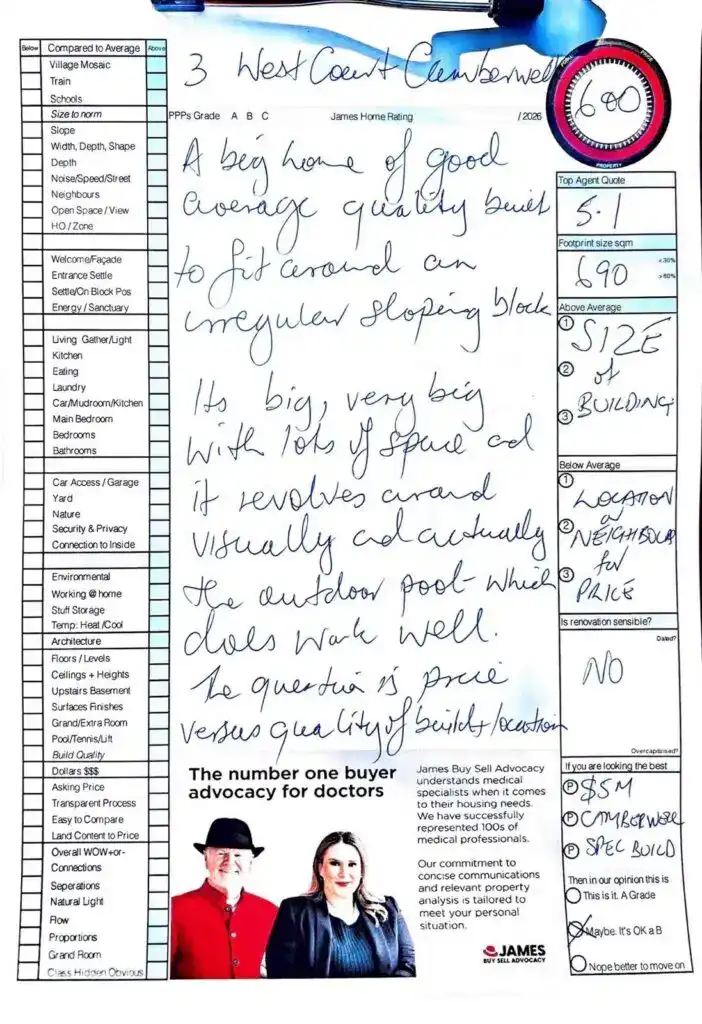 Below Compared to Average Above
Village Mosaic
Train
Schools
Size to norm
Slope
Width, Depth, Shape
Depth
Noise/Speed/Street
Neighbours
Open Space / View
HO / Zone
Welcome/Façade
Entrance Settle
Settle/On Block Pos
Energy / Sanctuary
Living Gather/Light
Kitchen
Eating
Laundry
Car/Mudroom/Kitchen
Main Bedroom
Bedrooms
Bathrooms
Car Access / Garage
Yard
Nature
Security & Privacy
Connection to Inside
Environmental
Working @ home
Stuff Storage
Temp: Heat /Cool
Architecture
Floors / Levels
Ceilings + Heights
Upstairs Basement
Surfaces Finishes
Grand/Extra Room
Pool/Tennis/Lift
Build Quality
Dollars $$$
Asking Price
Transparent Process
Easy to Compare
Land Content to Price
Overall WOW+or-
Connections
Seperations
Natural Light
Flow
Proportions
Grand Room
Class Hidden Obvious
3 West Court Camberwell
PPPs Grade A B C James Home Rating / 2026
A big home of good
average quality built
to fit around an
irregular sloping block
Its big, very big
with lots of space ad
it revolves around
visually ad actually
the outdoor pool which
does work well.
The question is price
versus quality of build + location
The number one buyer
advocacy for doctors
James Buy Sell Advocacy
understands medical
specialists when it comes
to their housing needs.
We have successfully
represented 100s of
medical professionals.
Our commitment to
concise communications
and relevant property
analysis is tailored to
meet your personal
situation.
JAMES
BUY SELL ADVOCACY
PRICE
600
PROPERTY
Top Agent Quote
5.1
Footprint size sqm
690
<30%
>60%
Above Average
1 SIZE
2 of
3 BUILDING
Below Average
1 LOCATION
2 NEIGHBOUR
for
3 PRICE
Is renovation sensible?
Dated?
NO
Overcapitalised?
If you are looking the best
P $5M
P CAMBERWELL
P SPEC BUILD
Then in our opinion this is
This is it. A Grade
Maybe. It's OK a B
Nope better to move on